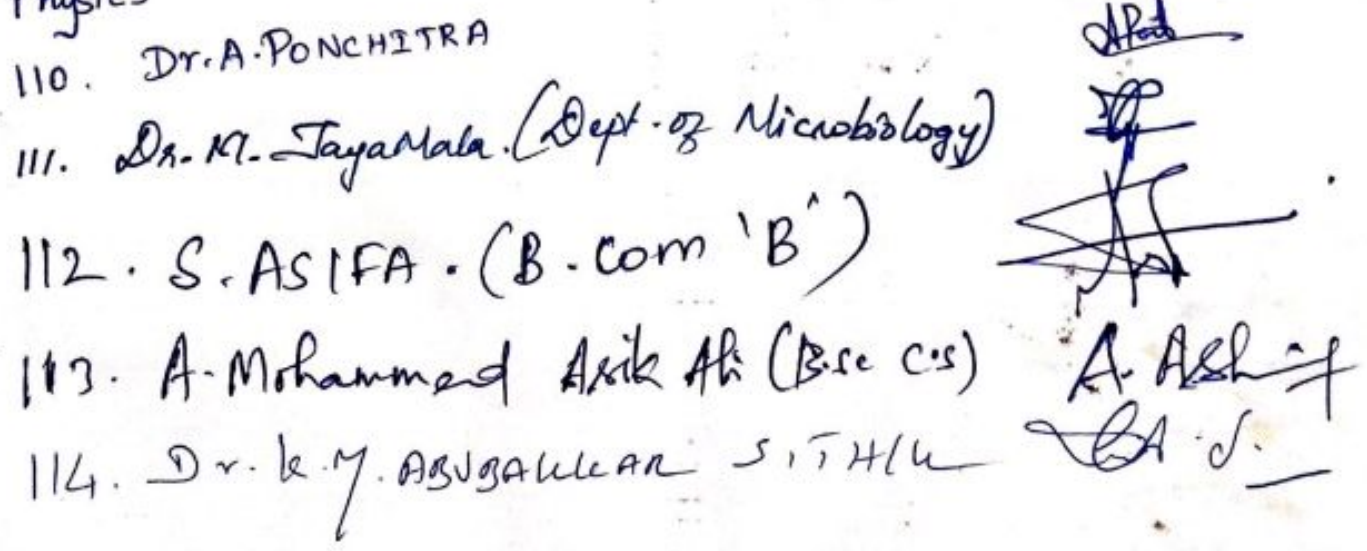 Physics
110. Dr. A. PONCHITRA
111. Dr. M. JayaMala. (Dept. of Microbiology)
112. S. ASIFA. (B.com 'B')
113. A. Mohammed Asik Ali (B.sc C.s) A. Ashif
114. Dr. K.M. ABUBAKKAR SITHIK